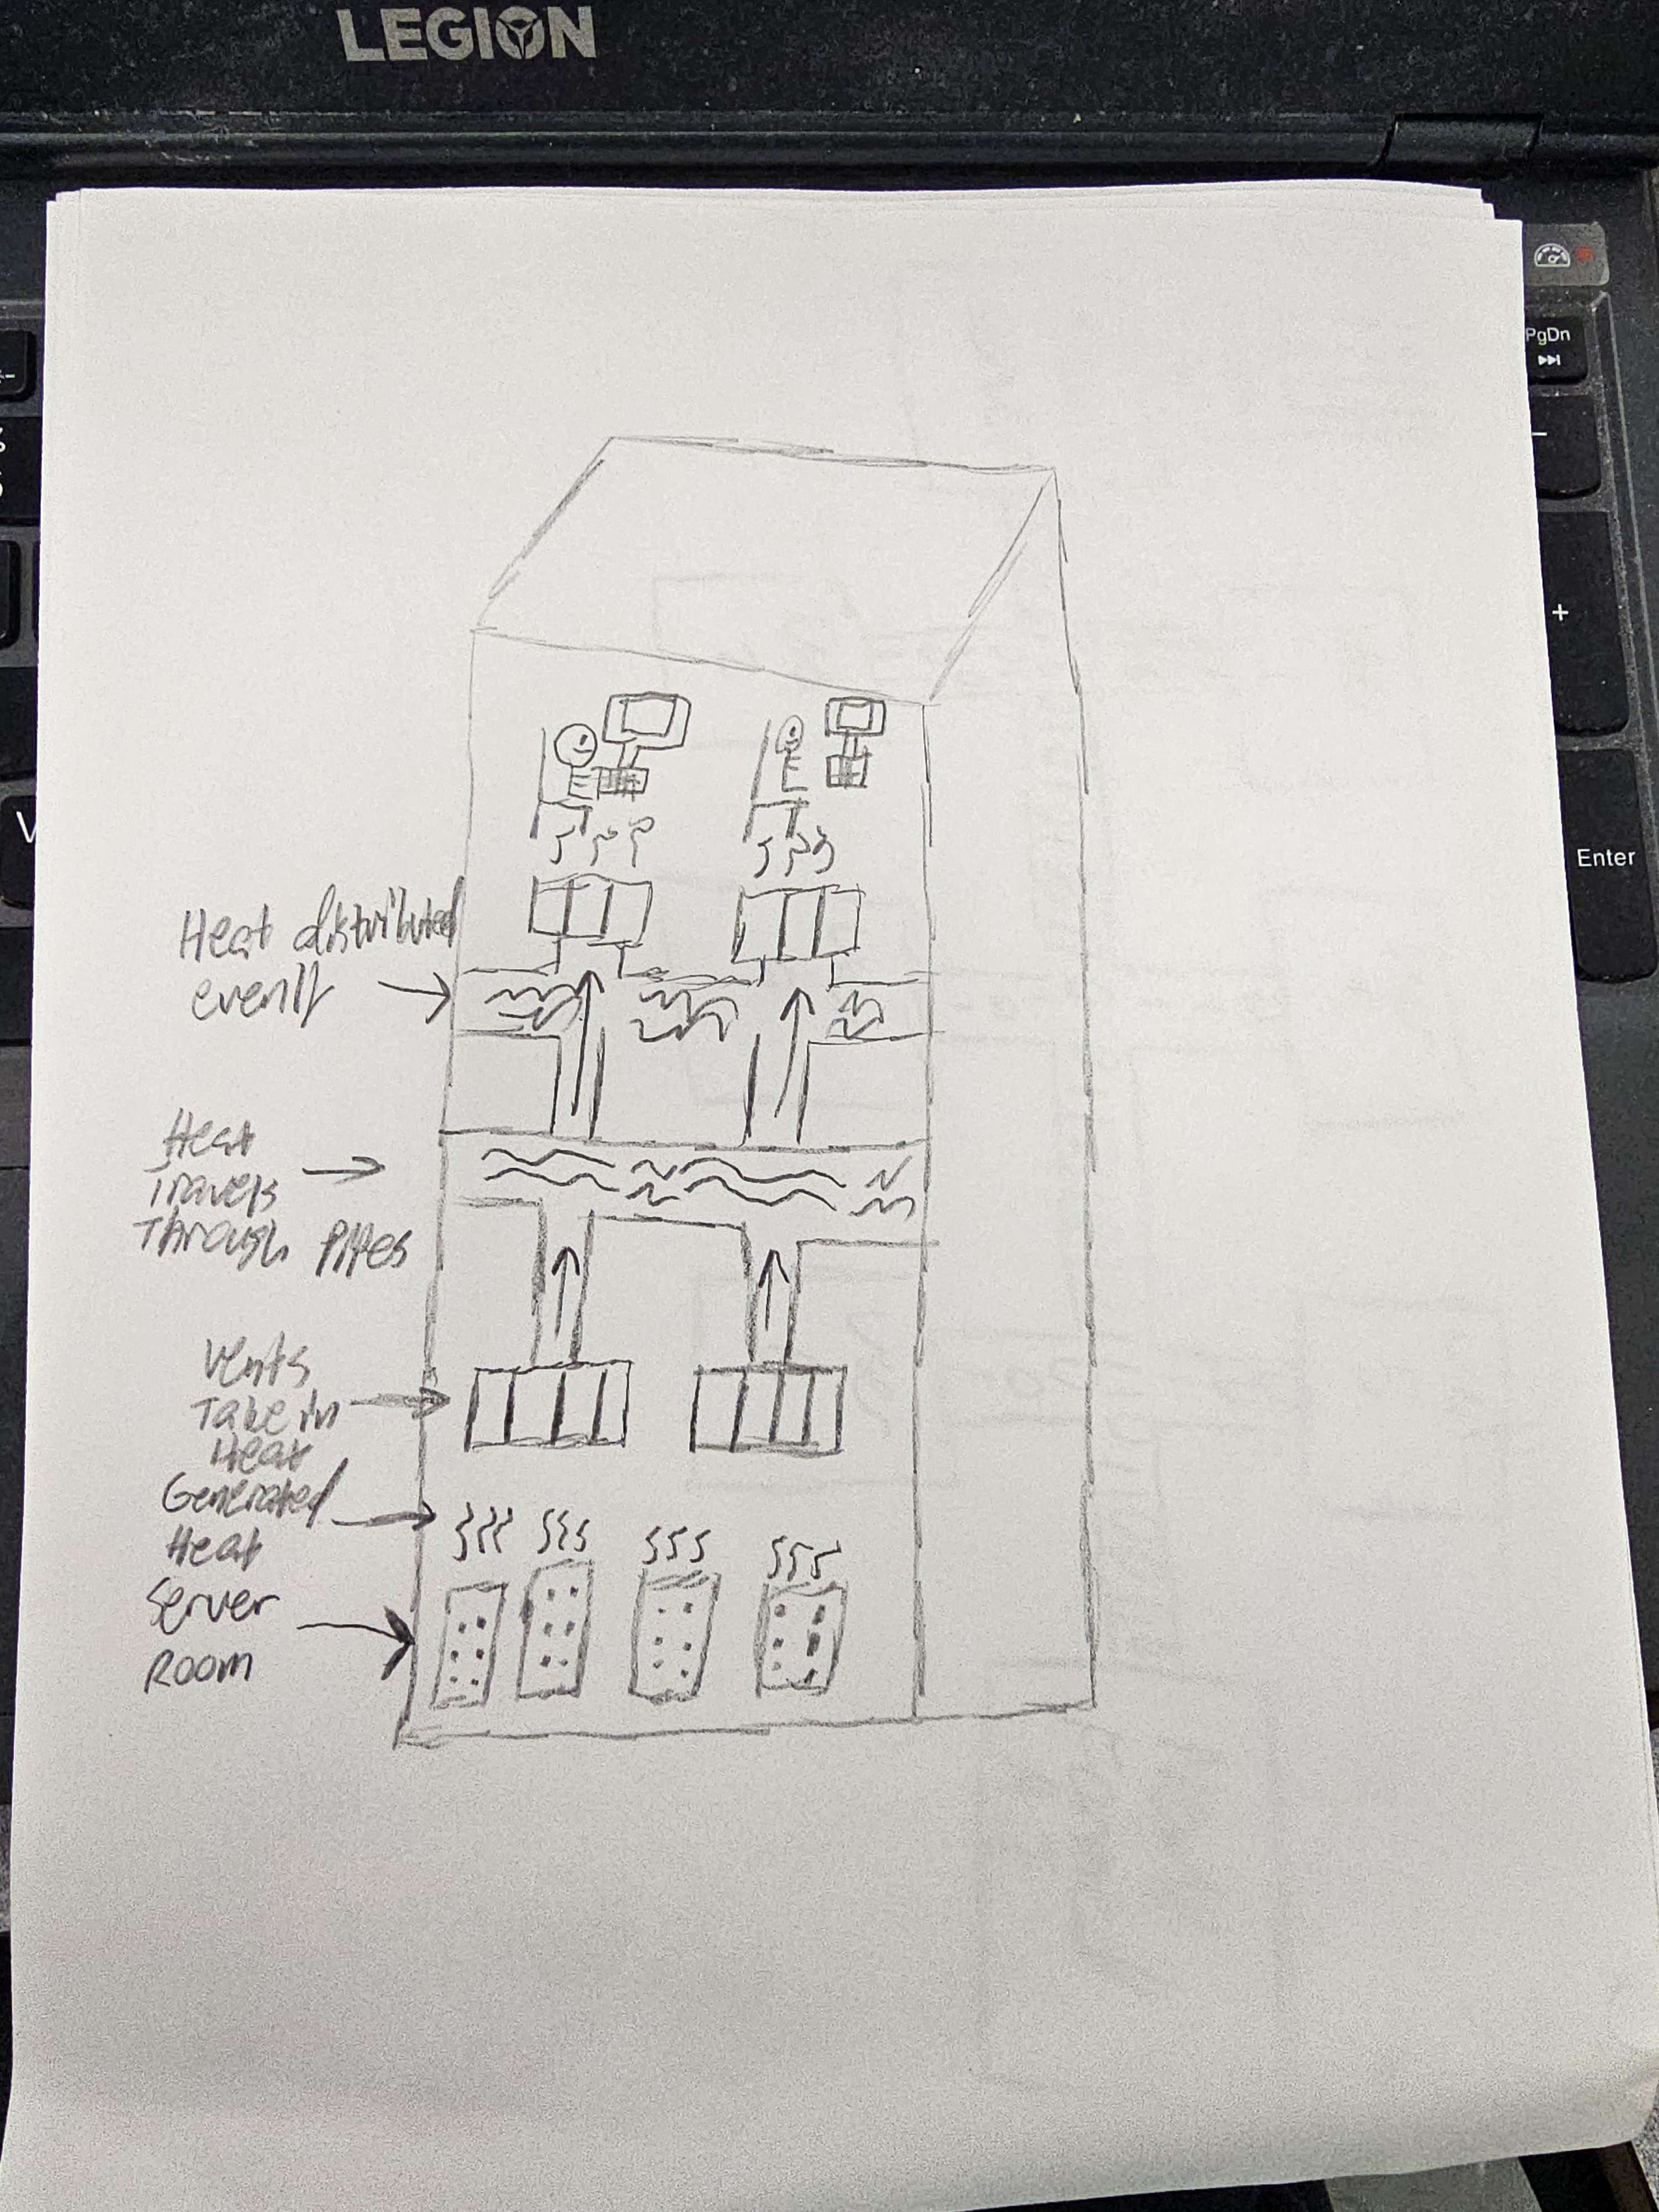 LEGION
PgDn
-
+
Enter
Heat distributed
evenly
Heat
Travels
Through Pipes
Vents
Take in
Heat
Generated
Heat
Server
Room